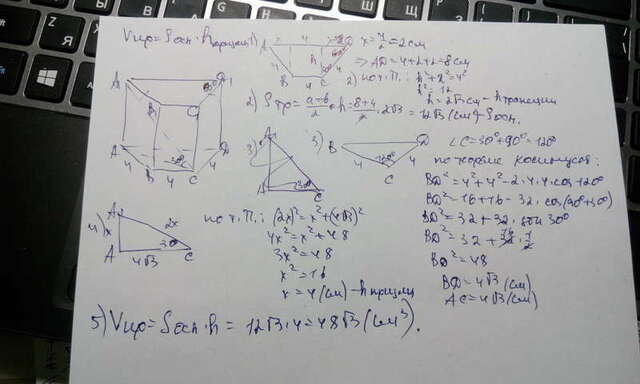 Vпр = Sосн · hпризмы
1)
A 4 D
4 4
B 4 C
x = 4/2 = 2 см
⇒ AD = 4+2+2 = 8 см
2) по т.П.: h² + 2² = 4²
h² = 12
h = 2√3 см - h трапеции
2) Sтр = (a+b)/2 · h = (8+4)/2 · 2√3 = 12√3 (см²) = Sосн.
A₁ D₁
B₁ C₁
A D
B 4 C
4 4
30°
3)
A₁
A C
30°
3) B D
4 4
120°
C
∠C = 30° + 90° = 120°
по теореме косинусов:
BD² = 4² + 4² - 2·4·4·cos 120°
BD² = 16+16 - 32·cos(90°+30°)
BD² = 32 + 32·sin 30°
BD² = 32 + 32 · 1/2
BD² = 48
BD = 4√3 (см)
AC = 4√3 (см)
4) A₁
x 2x
30°
A 4√3 C
по т.П.: (2x)² = x² + (4√3)²
4x² = x² + 48
3x² = 48
x² = 16
x = 4 (см) - h призмы
5) Vпр = Sосн · h = 12√3 · 4 = 48√3 (см³).